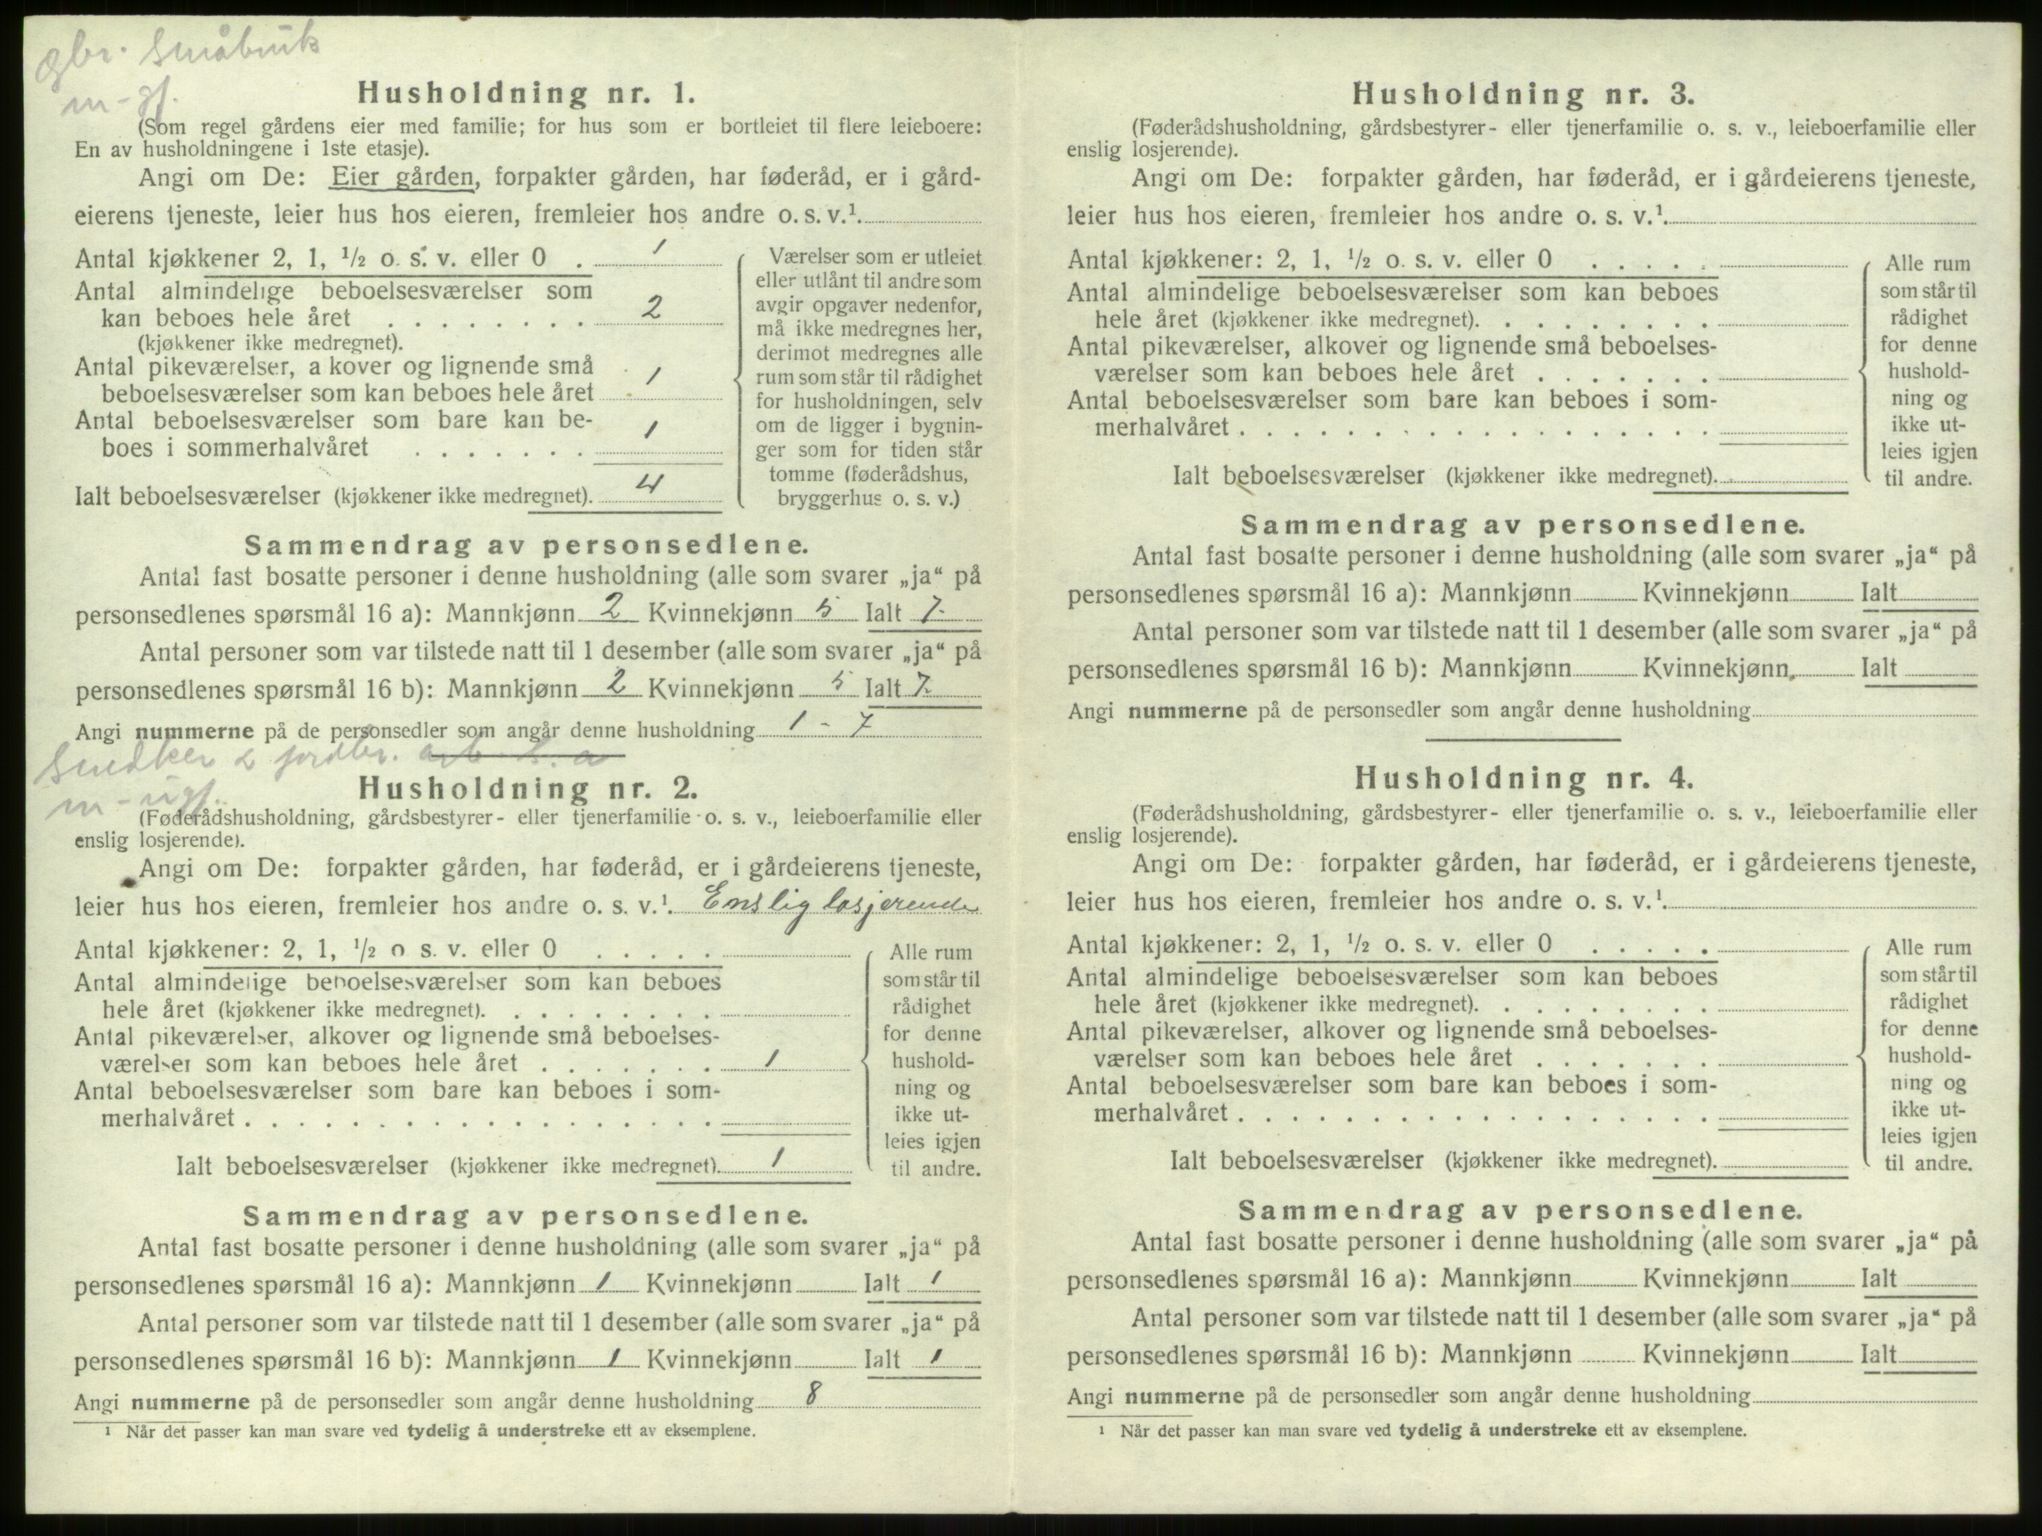 gbr. småbruk
m-gf.
Husholdning nr. 1.
(Som regel gårdens eier med familie; for hus som er bortleiet til flere leieboere:
En av husholdningene i 1ste etasje).
Angi om De: Eier gården, forpakter gården, har føderåd, er i gård-
eierens tjeneste, leier hus hos eieren, fremleier hos andre o. s. v.¹.
Antal kjøkkener 2, 1, ½ o. s. v. eller 0 . 1
Antal almindelige beboelsesværelser som
kan beboes hele året . . . . . . . . 2
(kjøkkener ikke medregnet).
Antal pikeværelser, a kover og lignende små
beboelsesværelser som kan beboes hele året 1
Antal beboelsesværelser som bare kan be-
boes i sommerhalvåret . . . . . . . 1
Ialt beboelsesværelser (kjøkkener ikke medregnet). 4
Værelser som er utleiet
eller utlånt til andre som
avgir opgaver nedenfor,
må ikke medregnes her,
derimot medregnes alle
rum som står til rådighet
for husholdningen, selv
om de ligger i bygnin-
ger som for tiden står
tomme (føderådshus,
bryggerhus o. s. v.)
Sammendrag av personsedlene.
Antal fast bosatte personer i denne husholdning (alle som svarer „ja“ på
personsedlenes spørsmål 16 a): Mannkjønn 2 Kvinnekjønn 5 Ialt 7.
Antal personer som var tilstede natt til 1 desember (alle som svarer „ja“ på
personsedlenes spørsmål 16 b): Mannkjønn 2 Kvinnekjønn 5 Ialt 7.
Angi nummerne på de personsedler som angår denne husholdning 1 - 7
Snedker & jordbr. arb. s. a
m-ugf.
Husholdning nr. 2.
(Føderådshusholdning, gårdsbestyrer- eller tjenerfamilie o. s. v., leieboerfamilie eller
enslig losjerende).
Angi om De: forpakter gården, har føderåd, er i gårdeierens tjeneste,
leier hus hos eieren, fremleier hos andre o. s. v.¹. Enslig losjerende
Antal kjøkkener: 2, 1, ½ o s. v. eller 0 . . . . .
Antal almindelige beboelsesværelser som kan beboes
hele året (kjøkkener ikke medregnet). . . . . . . . .
Antal pikeværelser, alkover og lignende små beboelses-
værelser som kan beboes hele året . . . . . . . 1
Antal beboelsesværelser som bare kan beboes i som-
merhalvåret . . . . . . . . . . . . . . . . . .
Ialt beboelsesværelser (kjøkkener ikke medregnet). 1
Alle rum
som står til
rådighet
for denne
hushold-
ning og
ikke ut-
leies igjen
til andre.
Sammendrag av personsedlene.
Antal fast bosatte personer i denne husholdning (alle som svarer „ja“ på
personsedlenes spørsmål 16 a): Mannkjønn 1 Kvinnekjønn Ialt 1
Antal personer som var tilstede natt til 1 desember (alle som svarer „ja“ på
personsedlenes spørsmål 16 b): Mannkjønn 1 Kvinnekjønn Ialt 1
Angi nummerne på de personsedler som angår denne husholdning 8
¹ Når det passer kan man svare ved tydelig å understreke ett av eksemplene.
Husholdning nr. 3.
(Føderådshusholdning, gårdsbestyrer- eller tjenerfamilie o. s. v., leieboerfamilie eller
enslig losjerende).
Angi om De: forpakter gården, har føderåd, er i gårdeierens tjeneste,
leier hus hos eieren, fremleier hos andre o. s. v.¹.
Antal kjøkkener: 2, 1, ½ o. s. v. eller 0 . . . . .
Antal almindelige beboelsesværelser som kan beboes
hele året (kjøkkener ikke medregnet). . . . . . . . .
Antal pikeværelser, alkover og lignende små beboelses-
værelser som kan beboes hele året . . . . . . .
Antal beboelsesværelser som bare kan beboes i som-
merhalvåret . . . . . . . . . . . . . . . . . .
Ialt beboelsesværelser (kjøkkener ikke medregnet).
Alle rum
som står til
rådighet
for denne
hushold-
ning og
ikke ut-
leies igjen
til andre.
Sammendrag av personsedlene.
Antal fast bosatte personer i denne husholdning (alle som svarer „ja“ på
personsedlenes spørsmål 16 a): Mannkjønn Kvinnekjønn Ialt
Antal personer som var tilstede natt til 1 desember (alle som svarer „ja“ på
personsedlenes spørsmål 16 b): Mannkjønn Kvinnekjønn Ialt
Angi nummerne på de personsedler som angår denne husholdning
Husholdning nr. 4.
(Føderådshusholdning, gårdsbestyrer- eller tjenerfamilie o. s. v., leieboerfamilie eller
enslig losjerende).
Angi om De: forpakter gården, har føderåd, er i gårdeierens tjeneste,
leier hus hos eieren, fremleier hos andre o. s. v.¹.
Antal kjøkkener: 2, 1, ½ o. s. v. eller 0 . . . . .
Antal almindelige beboelsesværelser som kan beboes
hele året (kjøkkener ikke medregnet). . . . . . . . .
Antal pikeværelser, alkover og lignende små beboelses-
værelser som kan beboes hele året . . . . . . .
Antal beboelsesværelser som bare kan beboes i som-
merhalvåret . . . . . . . . . . . . . . . . . .
Ialt beboelsesværelser (kjøkkener ikke medregnet).
Alle rum
som står til
rådighet
for denne
hushold-
ning og
ikke ut-
leies igjen
til andre.
Sammendrag av personsedlene.
Antal fast bosatte personer i denne husholdning (alle som svarer „ja“ på
personsedlenes spørsmål 16 a): Mannkjønn Kvinnekjønn Ialt
Antal personer som var tilstede natt til 1 desember (alle som svarer „ja“ på
personsedlenes spørsmål 16 b): Mannkjønn Kvinnekjønn Ialt
Angi nummerne på de personsedler som angår denne husholdning
¹ Når det passer kan man svare ved tydelig å understreke ett av eksemplene.